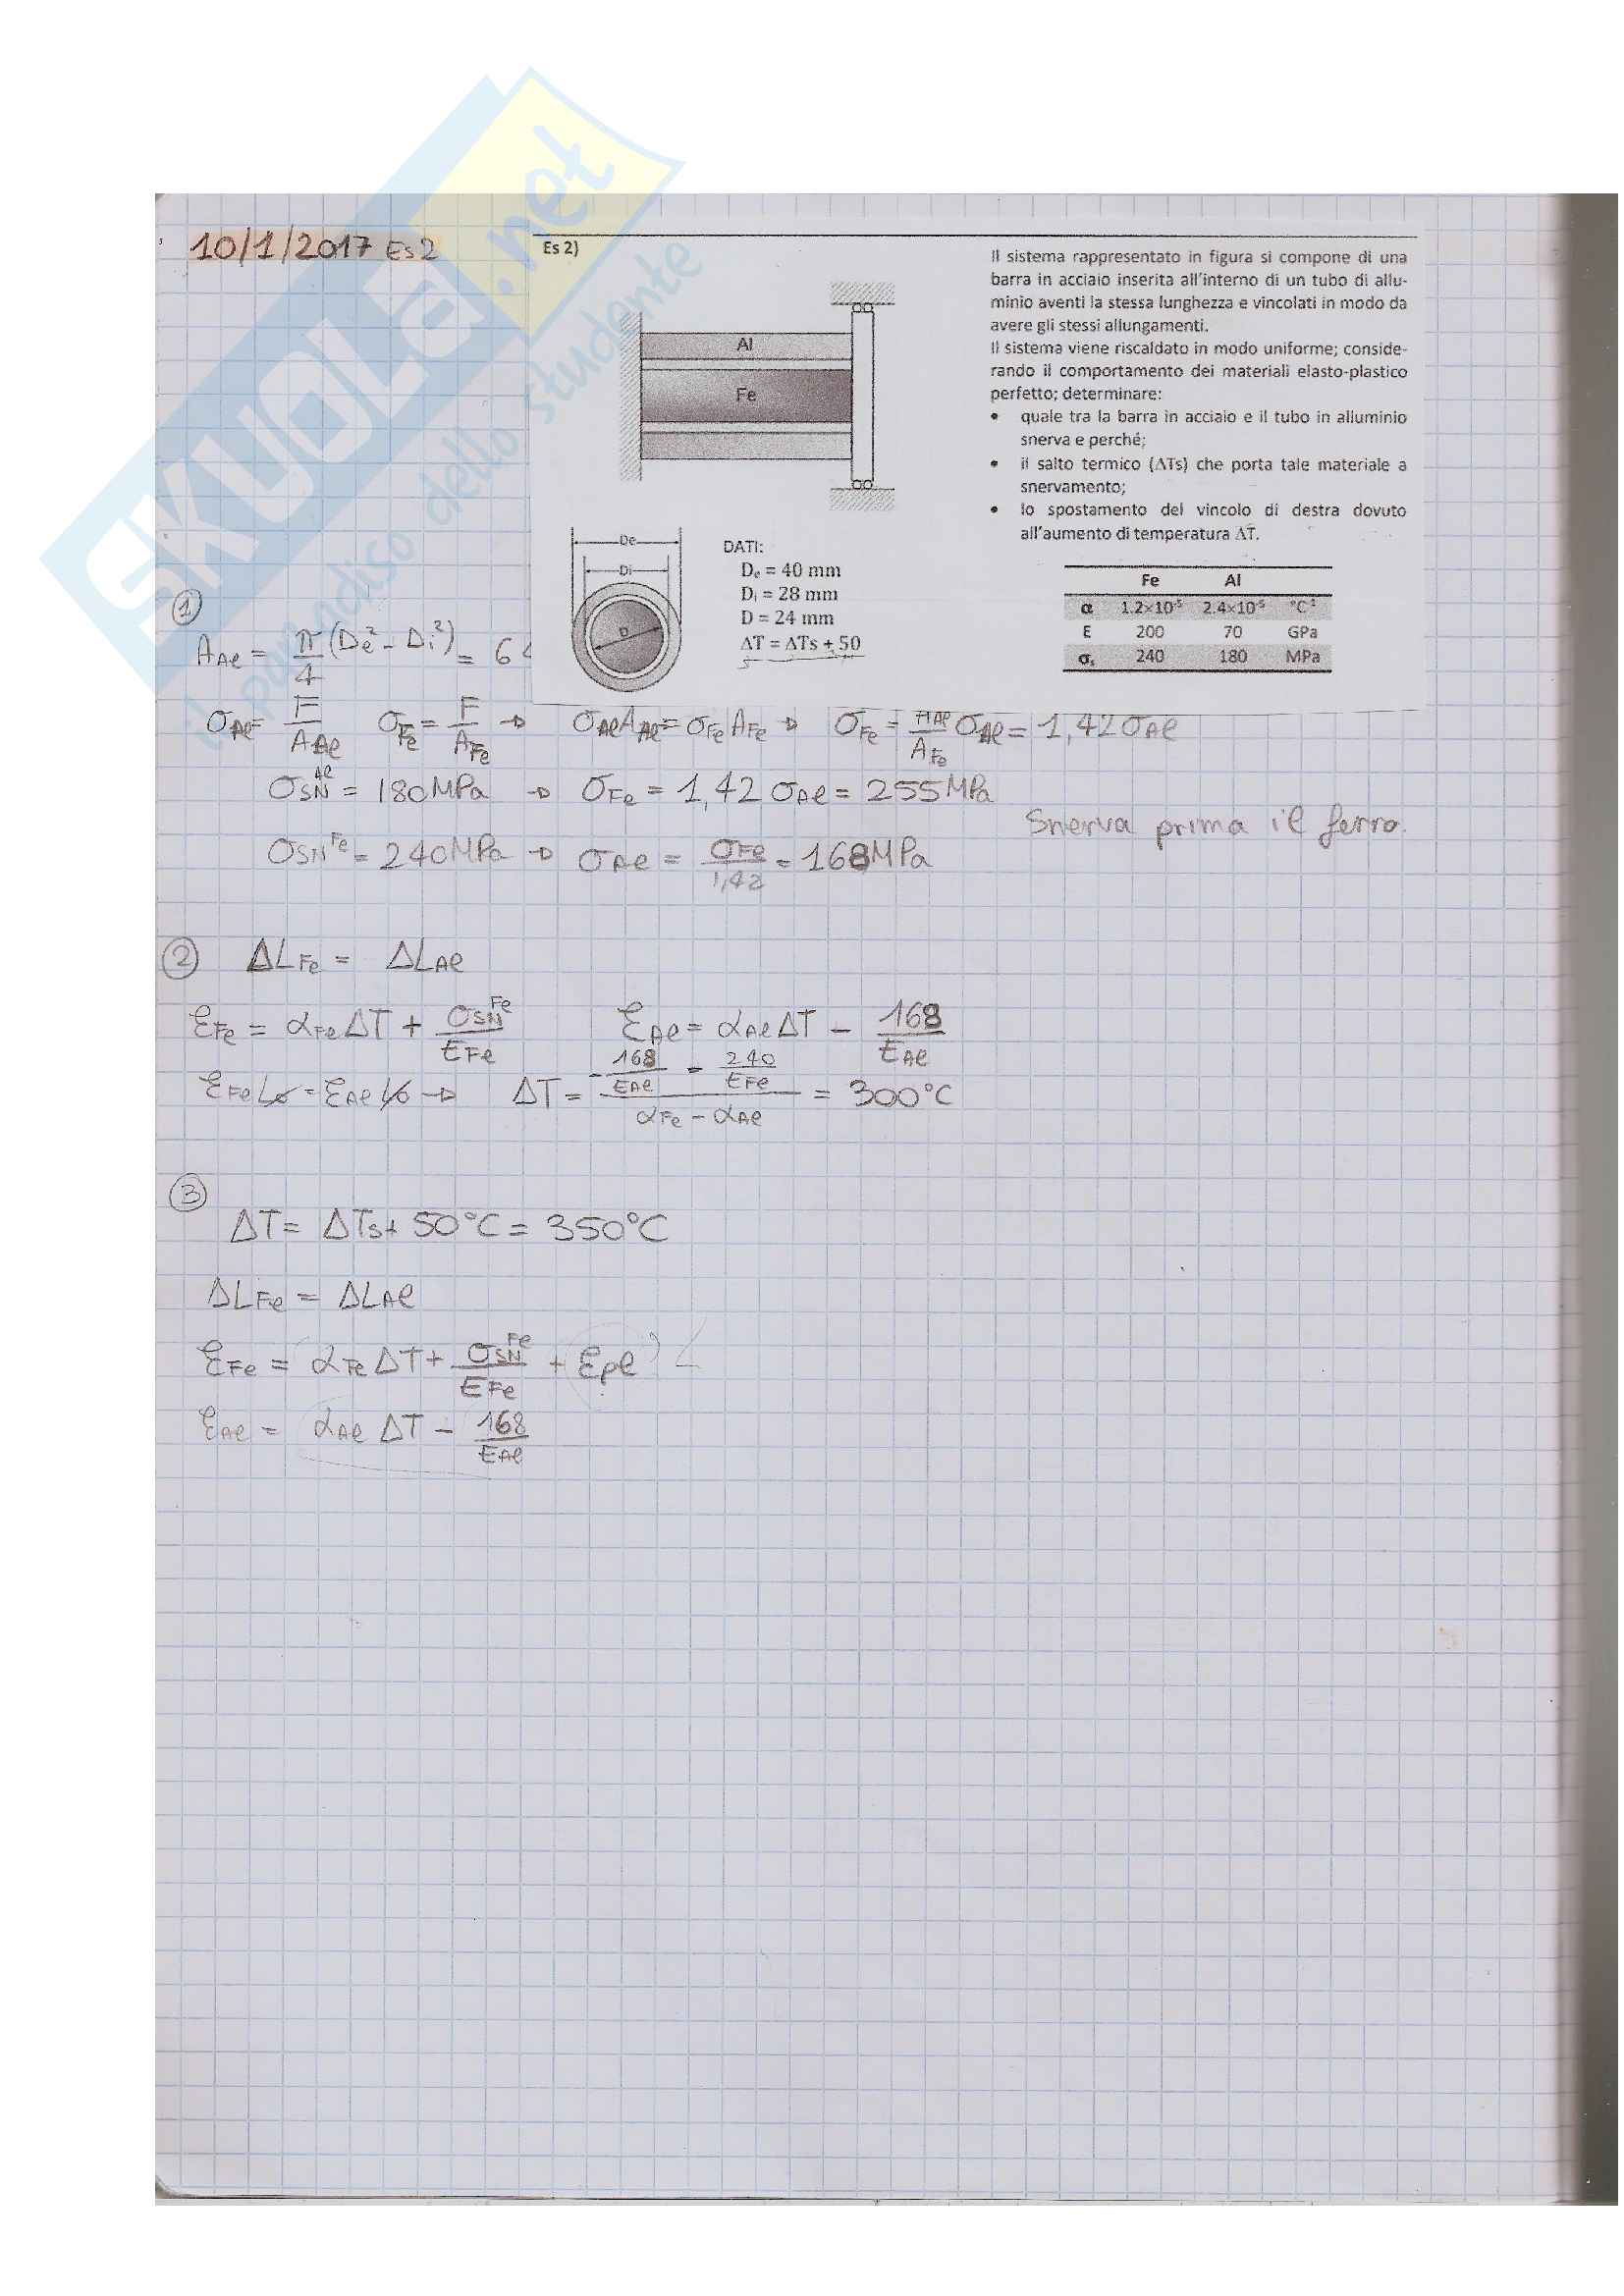 SKUOLA.net
il paradiso dello studente
10/1/2017 Es2
Es 2)
Il sistema rappresentato in figura si compone di una
barra in acciaio inserita all'interno di un tubo di allu-
minio aventi la stessa lunghezza e vincolati in modo da
avere gli stessi allungamenti.
Il sistema viene riscaldato in modo uniforme; conside-
rando il comportamento dei materiali elasto-plastico
perfetto; determinare:
• quale tra la barra in acciaio e il tubo in alluminio
snerva e perché;
• il salto termico (ΔTs) che porta tale materiale a
snervamento;
• lo spostamento del vincolo di destra dovuto
all'aumento di temperatura ΔT.
Al
Fe
De
Di
D
DATI:
Dₑ = 40 mm
Dᵢ = 28 mm
D = 24 mm
ΔT = ΔTs + 50
Fe Al
α 1.2×10⁻⁵ 2.4×10⁻⁵ °C⁻¹
E 200 70 GPa
σₛ 240 180 MPa
①
A_Al = π/4 (De² - Di²) = 64
σ_Al = F/A_Al σ_Fe = F/A_Fe → σ_Al A_Al = σ_Fe A_Fe → σ_Fe = A_Al/A_Fe σ_Al = 1,42 σ_Al
σ_SN^Al = 180MPa → σ_Fe = 1,42 σ_Al = 255MPa
Snerva prima il ferro.
σ_SN^Fe = 240MPa → σ_Al = σ_Fe/1,42 = 168MPa
② ΔL_Fe = ΔL_Al
ε_Fe = α_Fe ΔT + σ_SN^Fe/E_Fe ε_Al = α_Al ΔT - 168/E_Al
ε_Fe L₀ = ε_Al L₀ → ΔT = (-168/E_Al - 240/E_Fe)/(α_Fe - α_Al) = 300°C
③
ΔT = ΔTs + 50°C = 350°C
ΔL_Fe = ΔL_Al
ε_Fe = α_Fe ΔT + σ_SN^Fe/E_Fe + ε_pl
ε_Al = α_Al ΔT - 168/E_Al